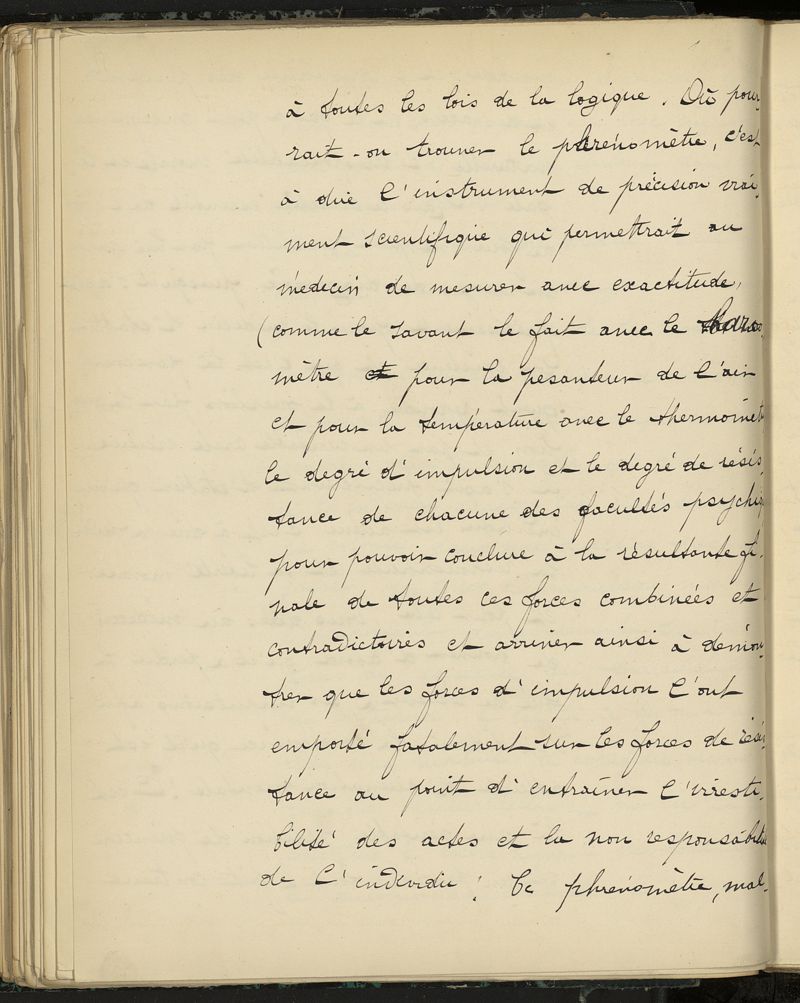 à toutes les lois de la logique. Où pour
rait-on trouver le phrénomètre, c'est
à dire l'instrument de précision vrai
ment scientifique qui permettrait au
médecin de mesurer avec exactitude,
(comme le savant le fait avec le baro
mètre et pour la pesanteur de l'air
et pour la température avec le thermomèt
le degré d'impulsion et le degré de résis
tance de chacune des facultés psychiq
pour pouvoir conclure à la résultante fi-
nale de toutes ces forces combinées et
contradictoires et arriver ainsi à démon
trer que les forces d'impulsion l'ont
emporté fatalement sur les forces de résis
tance au point d'entraîner l'irrésisti-
bilité des actes et la non responsabilité
de l'individu! Ce phrénomètre, mal-